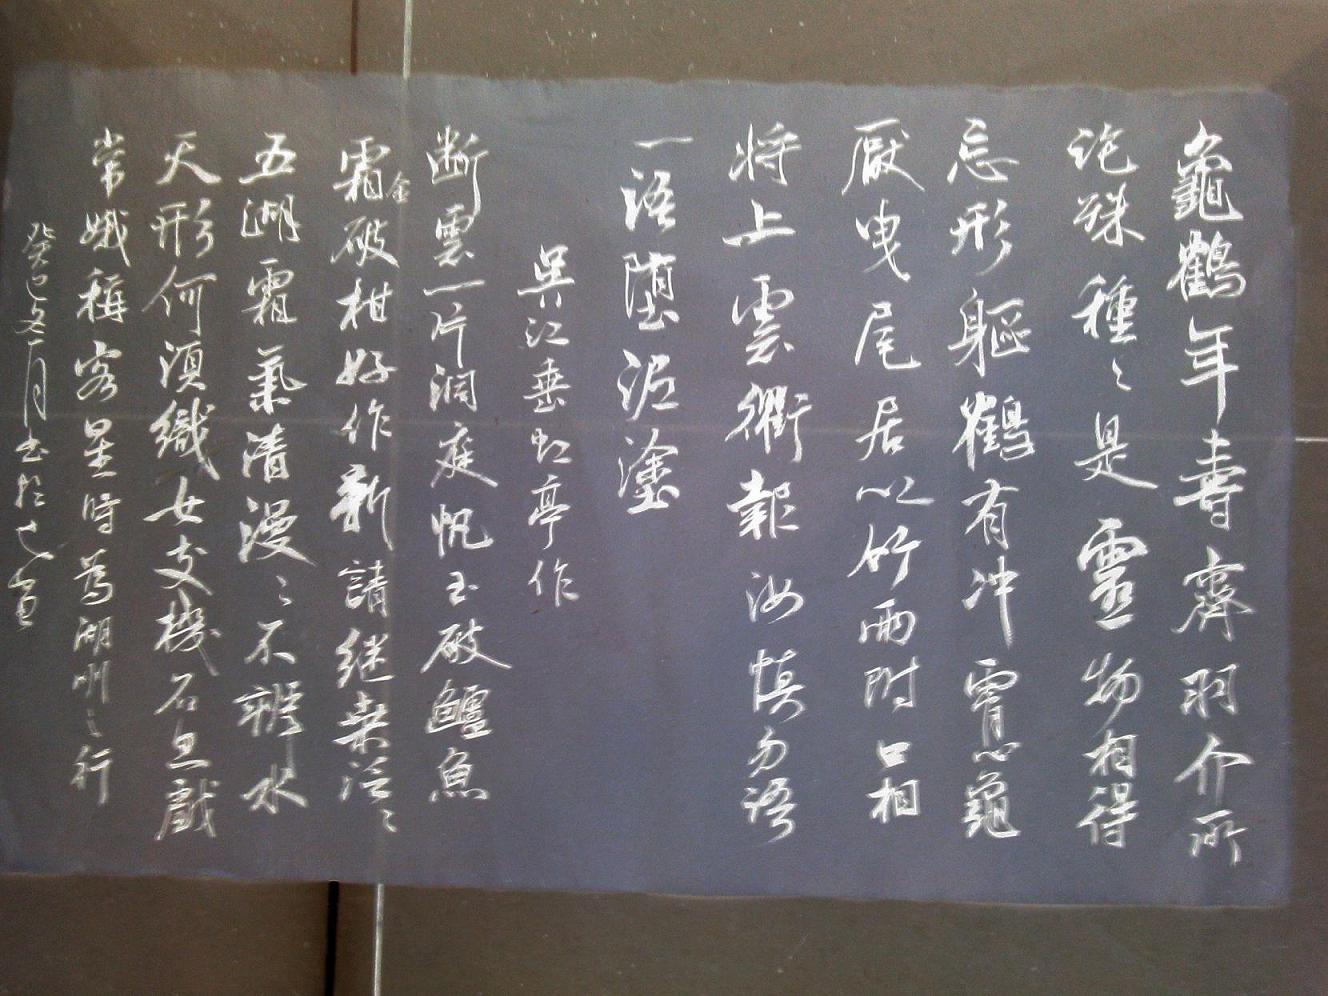 龜鶴年壽齊羽介所
託殊種々是靈物相得
忘形軀鶴有冲霄心龜
厭曳尾居以竹兩附口相
將上雲衢報汝慎勿語
一語墮泥塗
吳江垂虹亭作
斷雲一片洞庭帆玉破鱸魚
霜金破柑好作新請継桒泛々
五湖霜氣清漫々不辨水
天形何須織女支機石且戲
常娥稱客星時為湖州之行
癸巳 月書於